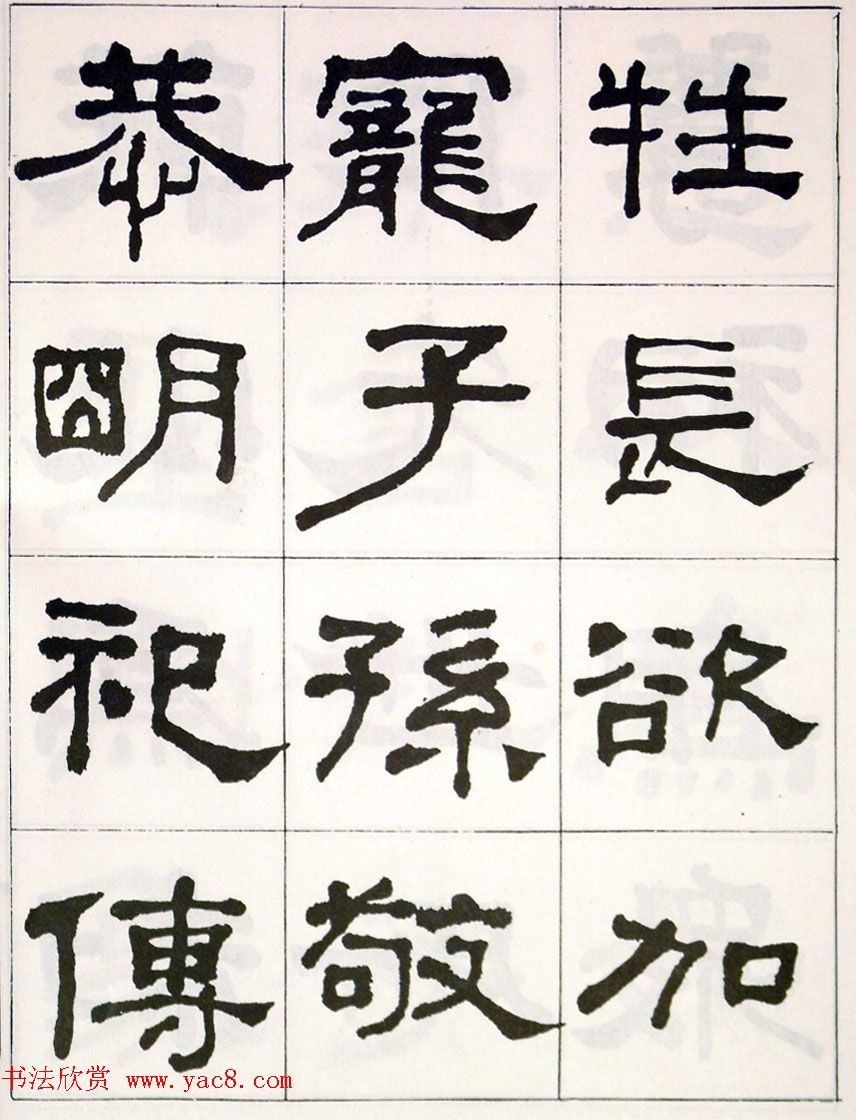 牲長欲加
寵子孫敬
恭明祀傳
书法欣赏 www.yac8.com